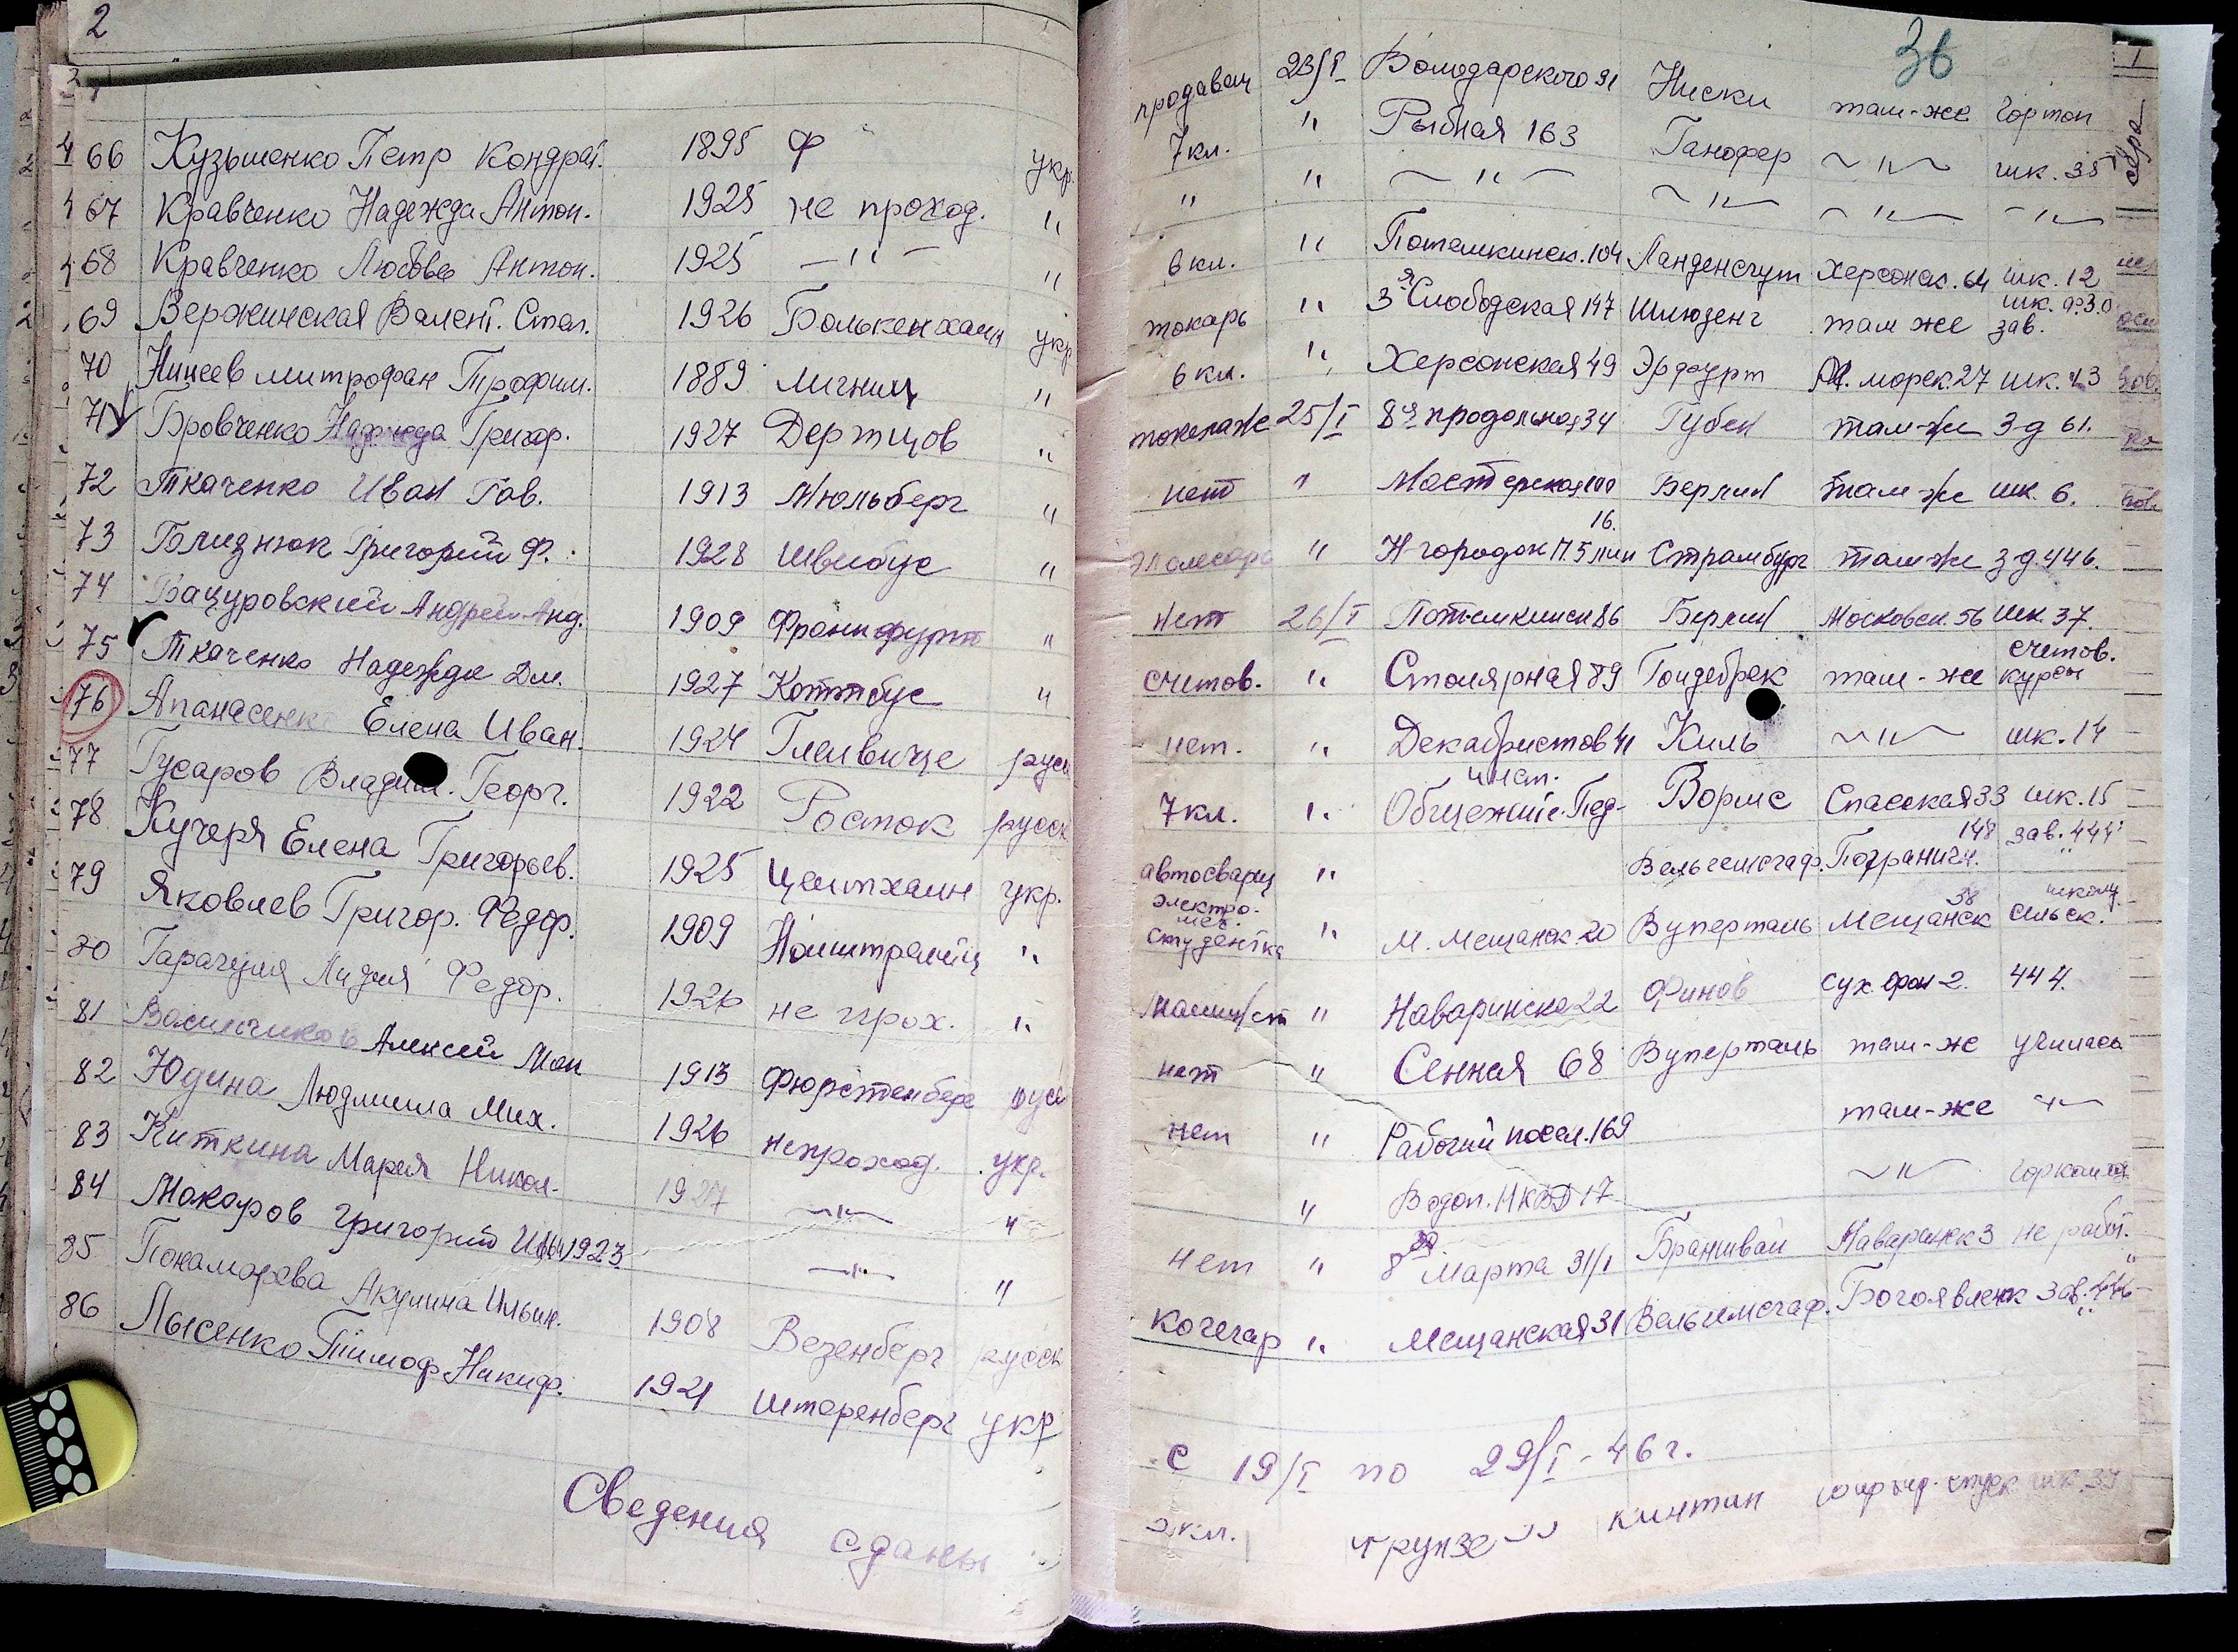 2
66 Кузьменко Петр Кондрат. 1895 Ф укр.
67 Кравченко Надежда Антон. 1925 не проход. "
68 Кравченко Любовь Антон. 1925 — " — "
69 Вержинская Валент. Стан. 1926 Болькенхайн укр
70 Минеев митрофан Трофим. 1889 Лигниц "
71 Бровченко Надежда Григор. 1927 Дертцов "
72 Ткаченко Иван Гав. 1913 Мюльберг "
73 Близнюк Григорий Ф. 1928 Швибус "
74 Вацуровский Андрей Анд. 1909 Франкфурт "
75 Ткаченко Надежда Дм. 1927 Коттбус "
76 Апанасенко Елена Иван. 1924 Глейвице русс
77 Гусаров Владим. Георг. 1922 Росток русск
78 Кучеря Елена Григорьев. 1925 Цейтхайн укр.
79 Яковлев Григор. Федор. 1909 "
80 Лидия Федор. 1926 не прох. "
81 Васильчиков Алексей Ман 1913 Фюрстенберг русс
82 Юдина Людмила Мих. 1926 не проход. укр.
83 Киткина Мария Никол. 1927 — " — "
84 Макаров Григорий 1923 — " — "
85 Понаморева Акулина Ильин. 1908 Везенберг русск
86 Лысенко Тимоф. Никиф. 1921 Штеренберг укр
Сведения сданы
36
продавец 23/I Володарского 91 Ниски там-же Гортоп
7 кл. " Рыбная 163 Ганофер — " — шк. 35
" " — " — — " — — " — — " —
6 кл. " Потемкинск. 104 Ланденсгут Херсонск. 64 шк. 12
токарь " 3я Слободская 147 Шлюзенг там же шк. ф.з.о зав.
6 кл. " Херсонская 49 Эрфурт М. морск. 27 шк. 43
25/I 8я продольная 34 Губен там-же З-д 61.
нет " Мастерская 100 Берлин там-же шк. 6.
" Н-городок П. 5 лин 16. Страмбург там же з-д. 446.
нет 26/I Потемкинск 86 Берлин Московск. 56 шк. 37.
счетов. " Столярная 89 там-же счетов. курсы
нет. " Декабристов 41 Киль — " — шк. 14
7 кл. " Общежитие Пед- инст. Вормс Спасская 33 шк. 15
автосварщ " Вельгемсгаф. Погранич. 148 зав. 444
электро- мех. студентка " М. Мещанск. 20 Вуперталь Мещанск 38 сельск.
Машинист " Наваринска 22 Финов 444.
нет " Сенная 68 Вуперталь там-же училась
нет " Рабочий посел. 169 там-же — " —
" Водоп. НКВД 17 — " —
нет " 8го Марта 31/1 Наваринск 3 не работ.
Кочегар " Мещанская 31 Вельгемсгаф. Богоявленк Зав. 446
с 19/I по 29/I-46 г.
кл. Фрунзе спуск шк. 39